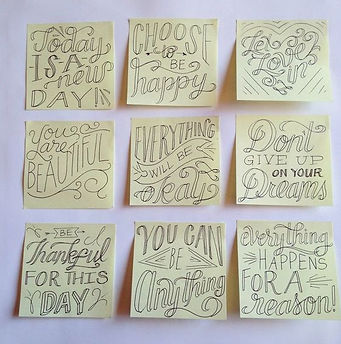 Today
IS A
new
DAY!
CHOOSE
to
BE
happy
Let
Love
in
You
are
BEAUTIFUL
EVERYTHING
WILL BE
Okay
Don't
GIVE UP
ON YOUR
Dreams
BE
Thankful
FOR THIS
DAY
YOU CAN
BE
Anything
everything
HAPPENS
FOR A
reason!